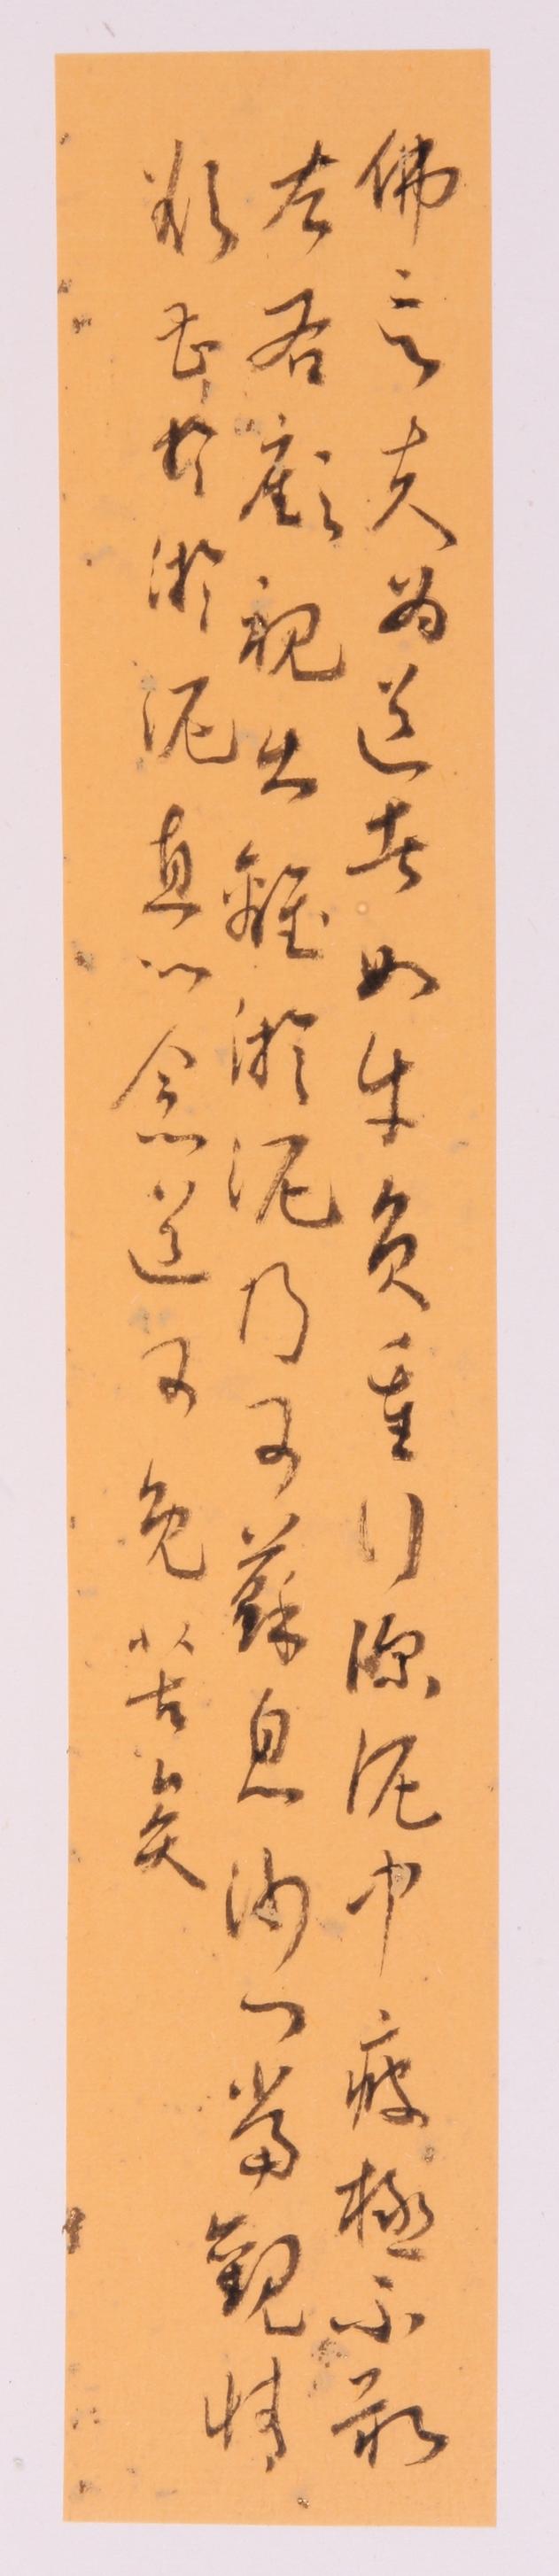 佛言夫為道者如牛負重行深泥中疲極不敢
左右顧視出離淤泥乃可蘇息沙門當觀情
欲甚於淤泥直心念道可免苦矣